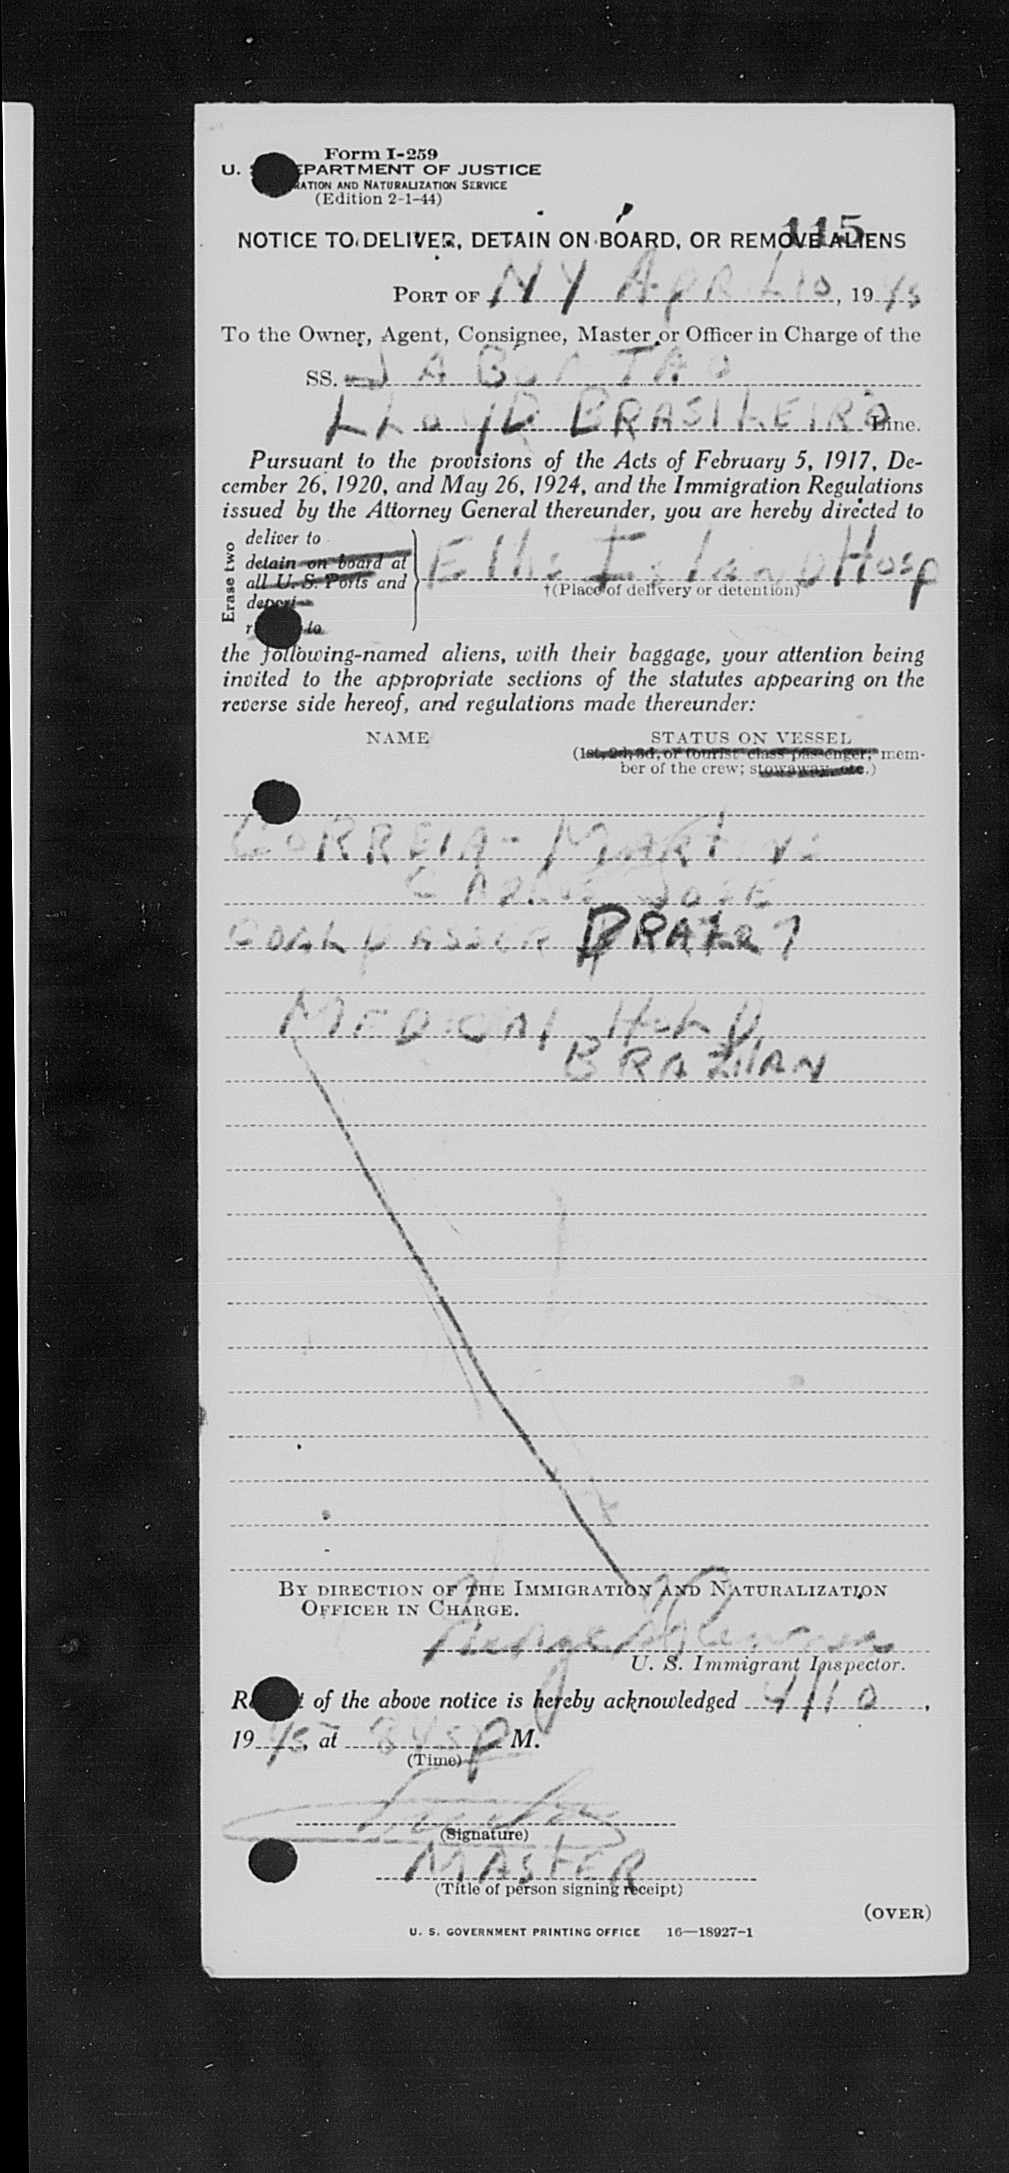 Form I-259
U. S. DEPARTMENT OF JUSTICE
IMMIGRATION AND NATURALIZATION SERVICE
(Edition 2-1-44)
115
NOTICE TO DELIVER, DETAIN ON BOARD, OR REMOVE ALIENS
PORT OF NY APRIL 10, 1945
To the Owner, Agent, Consignee, Master or Officer in Charge of the
SS. JABOATAO
LLOYD BRASILEIRO Line.
Pursuant to the provisions of the Acts of February 5, 1917, De-
cember 26, 1920, and May 26, 1924, and the Immigration Regulations
issued by the Attorney General thereunder, you are hereby directed to
Erase two
deliver to
detain on board at
all U. S. Ports and
deport
to
Ellis Island Hosp
†(Place of delivery or detention)
the following-named aliens, with their baggage, your attention being
invited to the appropriate sections of the statutes appearing on the
reverse side hereof, and regulations made thereunder:
NAME STATUS ON VESSEL
(1st, 2d, 3d, or tourist class passenger; mem-
ber of the crew; stowaway, etc.)
CORREIA - MARTINS
JOSE
COAL PASSER
MEDICAL HOLD
BRAZILIAN
BY DIRECTION OF THE IMMIGRATION AND NATURALIZATION
OFFICER IN CHARGE.
George
U. S. Immigrant Inspector.
Receipt of the above notice is hereby acknowledged 4/10,
1945, at 845 P M.
(Time)
(Signature)
MASTER
(Title of person signing receipt)
(OVER)
U. S. GOVERNMENT PRINTING OFFICE 16—18927-1